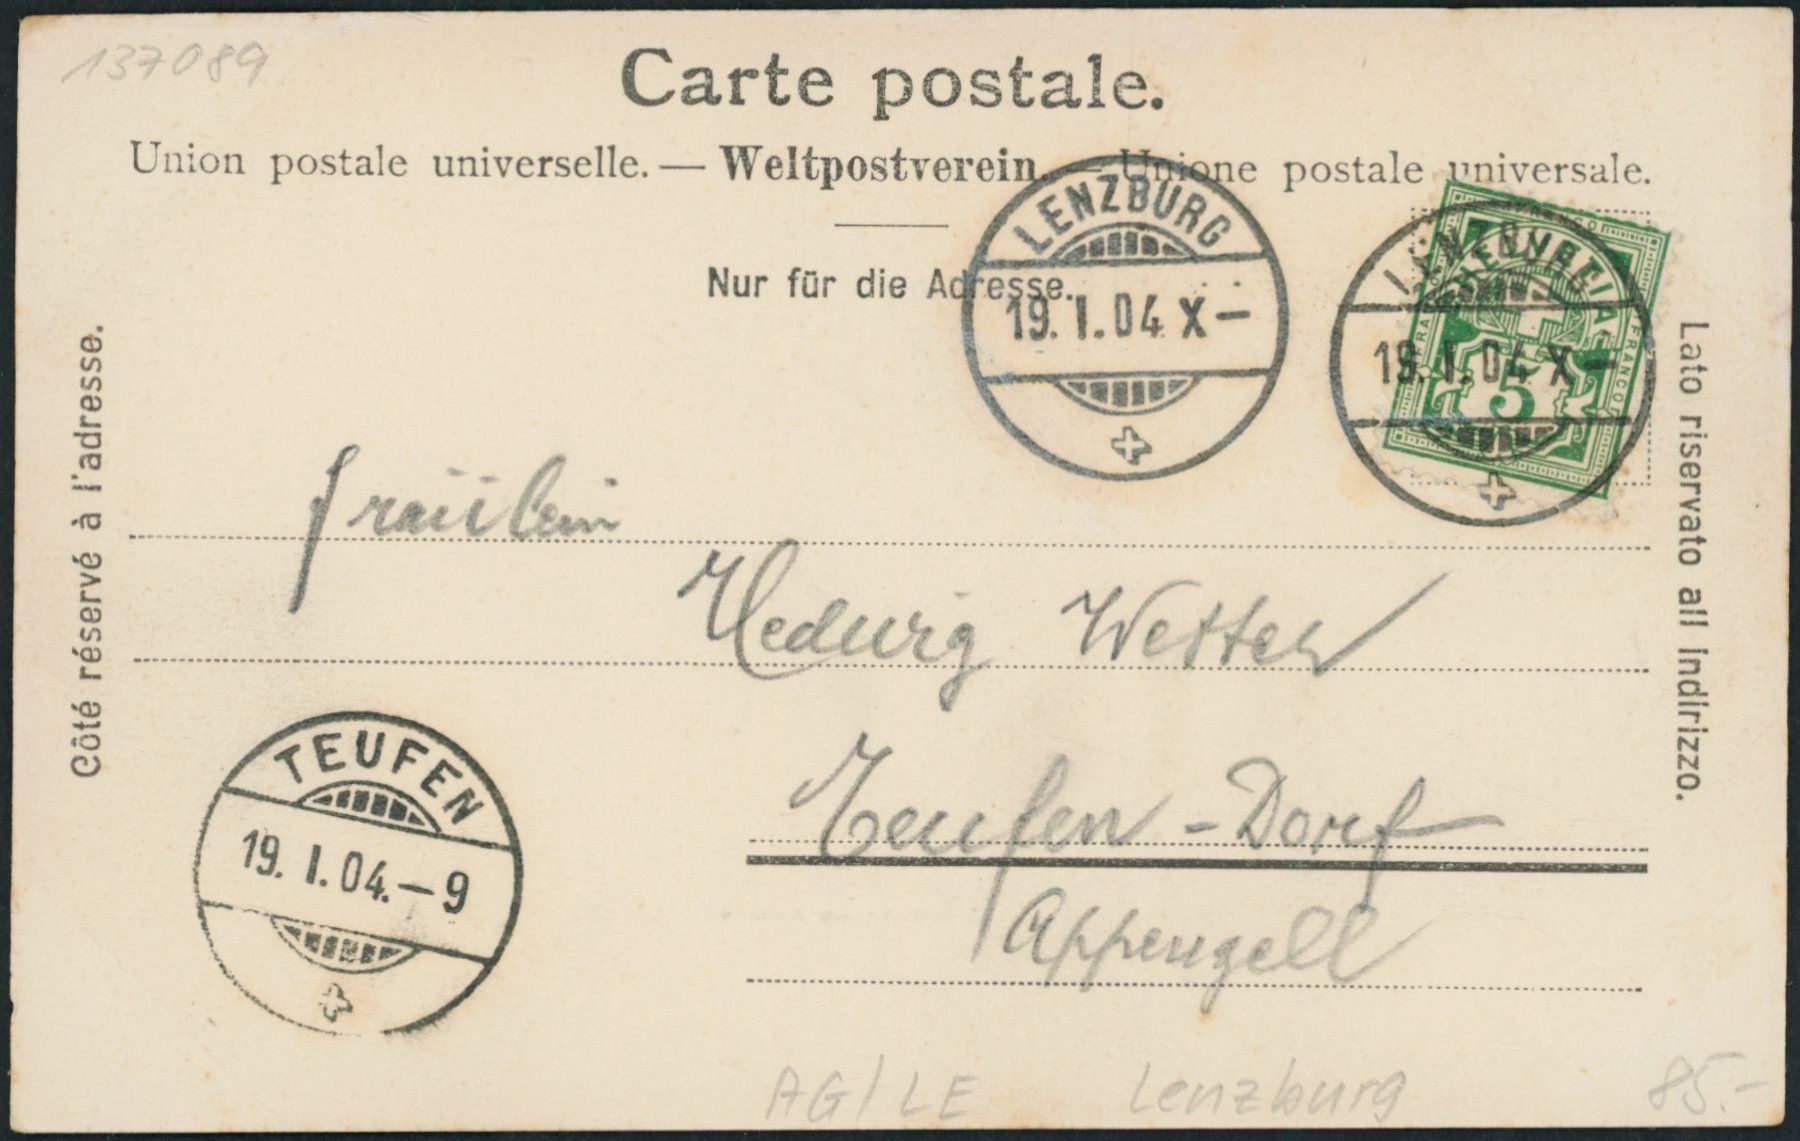 137089
Carte postale.
Union postale universelle. — Weltpostverein. — Unione postale universale.
Nur für die Adresse.
LENZBURG
19. I. 04 X —
LENZBURG
19. I. 04 X —
FRANCO
HELVETIA
FRANCO
5
Côté réservé à l'adresse.
Lato riservato all indirizzo.
Fräulein
Hedwig Wetter
Teufen - Dorf
Appenzell
TEUFEN
19. I. 04. — 9
AG/LE Lenzburg 85.-